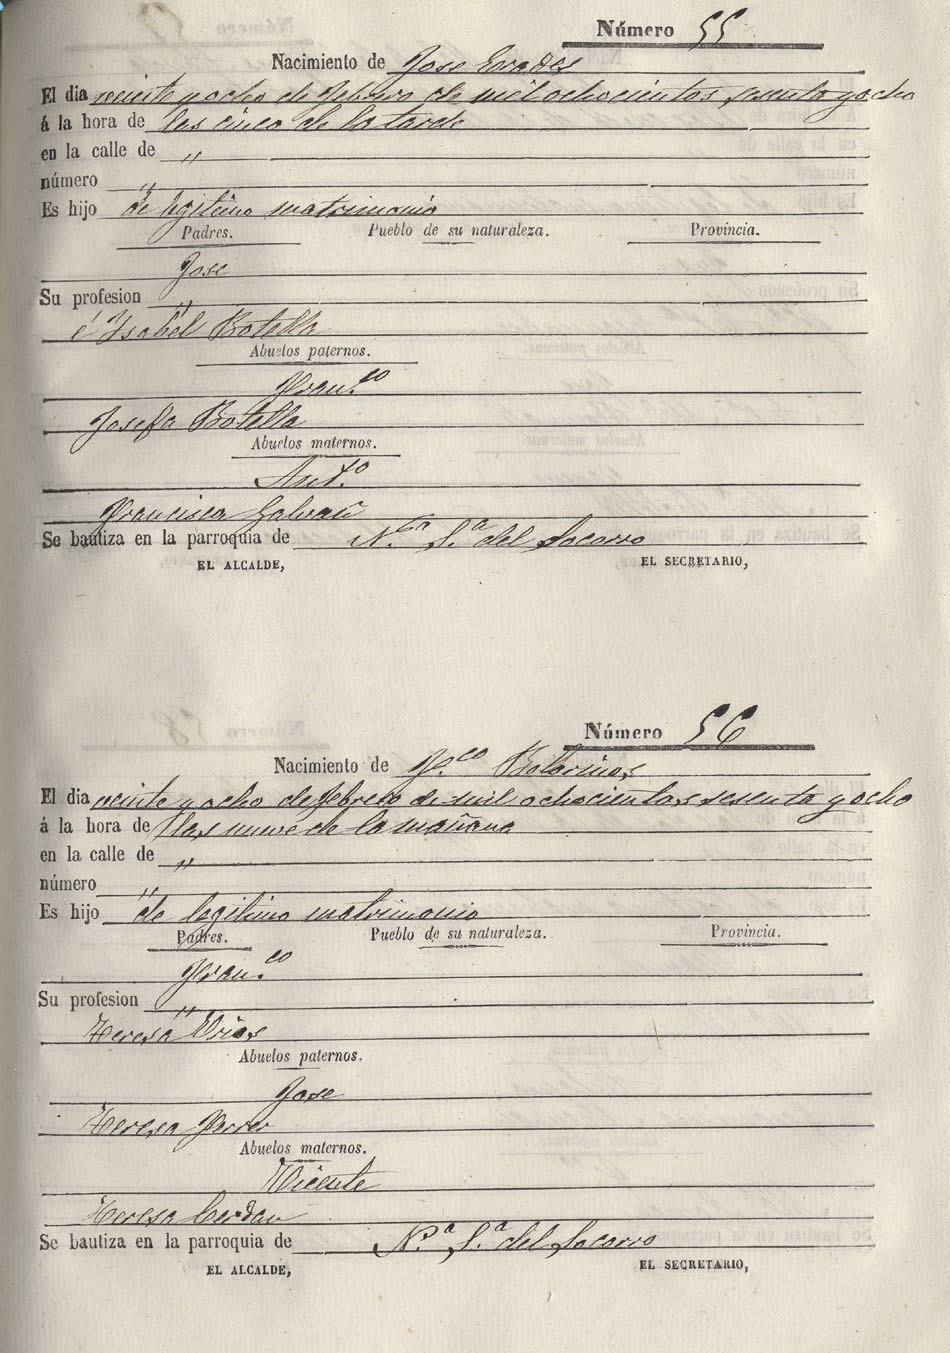 Número 55
Nacimiento de Jose Erades
El dia veinte y ocho de Febrero de mil ochocientos sesenta y ocho
á la hora de las cinco de la tarde
en la calle de "
número "
Es hijo de legitimo matrimonio
Padres. Pueblo de su naturaleza. Provincia.
Jose
Su profesion "
é Ysabel Botella
Abuelos paternos.
Fran.co
Josefa Botella
Abuelos maternos.
Ant.o
Francisca Galvañ
Se bautiza en la parroquia de N.a S.a del Socorro
EL ALCALDE, EL SECRETARIO,
Número 56
Nacimiento de F.co Botorinos
El dia veinte y ocho de febrero de mil ochocientos sesenta y ocho
á la hora de las nueve de la mañana
en la calle de "
número "
Es hijo de legitimo matrimonio
Padres. Pueblo de su naturaleza. Provincia.
Fran.co
Su profesion "
Teresa Urios
Abuelos paternos.
Jose
Teresa Ferrer
Abuelos maternos.
Vicente
Teresa Cerdan
Se bautiza en la parroquia de N.a S.a del Socorro
EL ALCALDE, EL SECRETARIO,